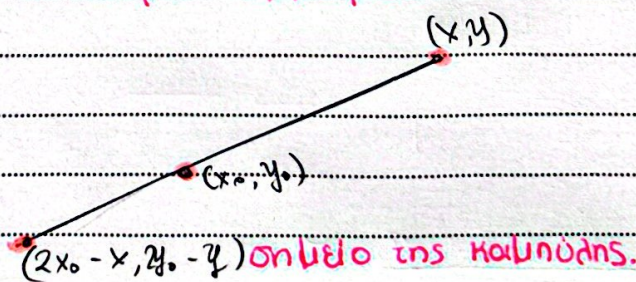 (x,y)
(x₀, y₀)
(2x₀ - x, 2y₀ - y) σημείο της καμπύλης.